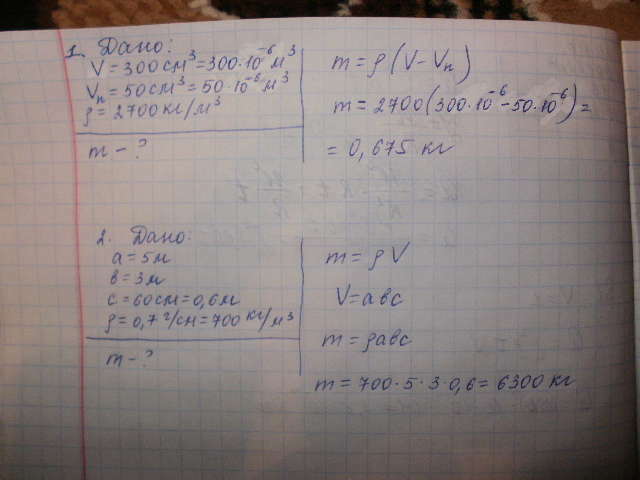 1. Дано:
V = 300 см³ = 300·10⁻⁶ м³
Vп = 50 см³ = 50·10⁻⁶ м³
ρ = 2700 кг/м³
m - ?
m = ρ(V - Vп)
m = 2700(300·10⁻⁶ - 50·10⁻⁶) =
= 0,675 кг
2. Дано:
a = 5 м
в = 3 м
c = 60 см = 0,6 м
ρ = 0,7 г/см = 700 кг/м³
m - ?
m = ρV
V = aвc
m = ρaвc
m = 700·5·3·0,6 = 6300 кг